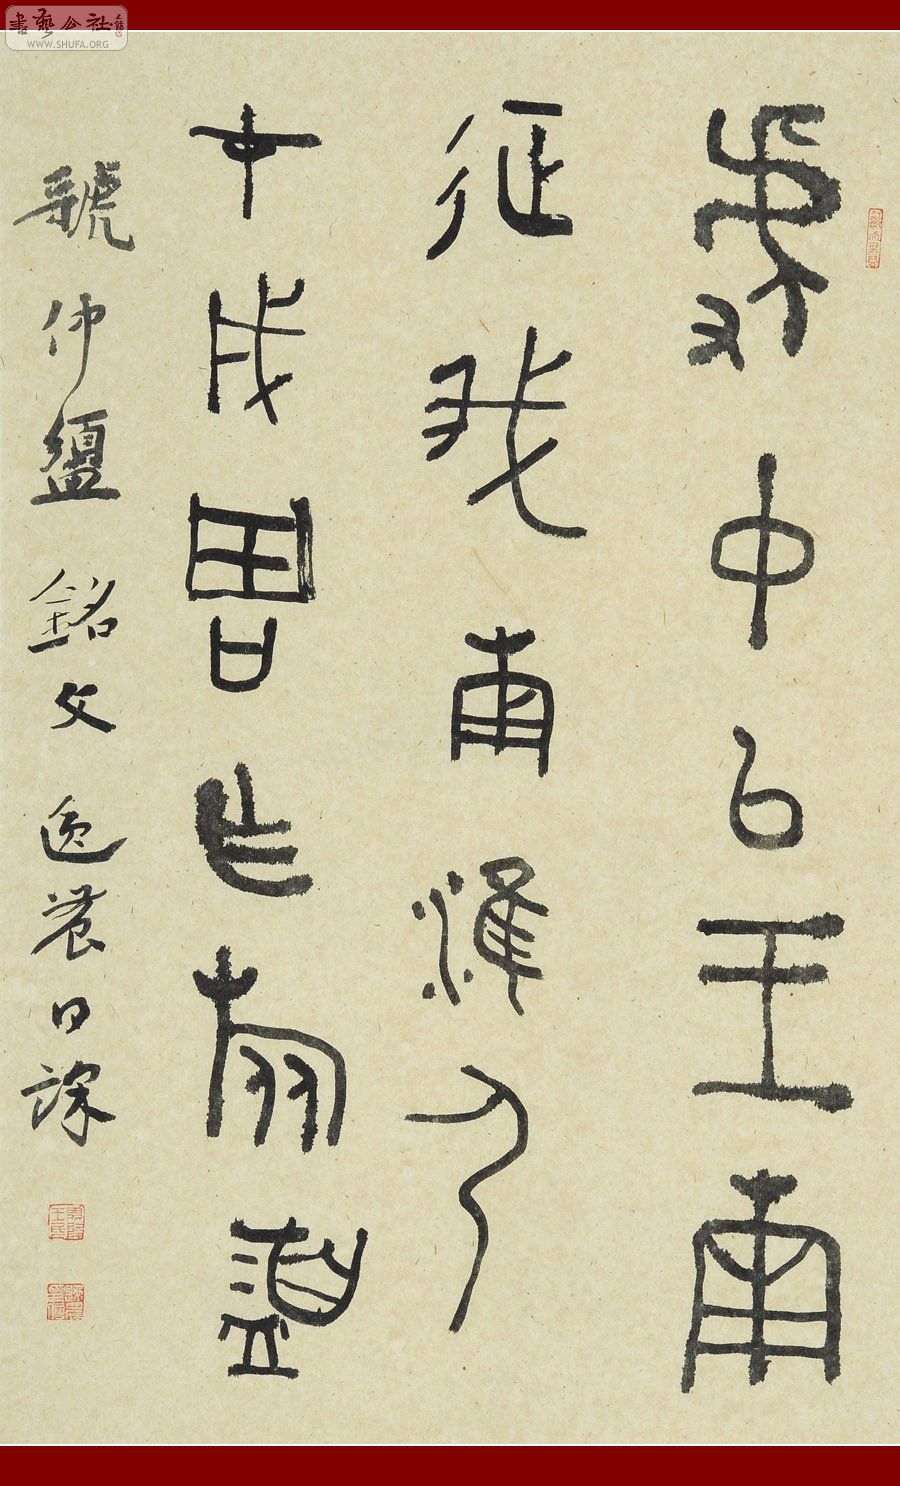 書藝公社
WWW.SHUFA.ORG
虢中㠯王南
征伐南淮尸
才成周乍旅盨
虢仲盨銘文逸農日課